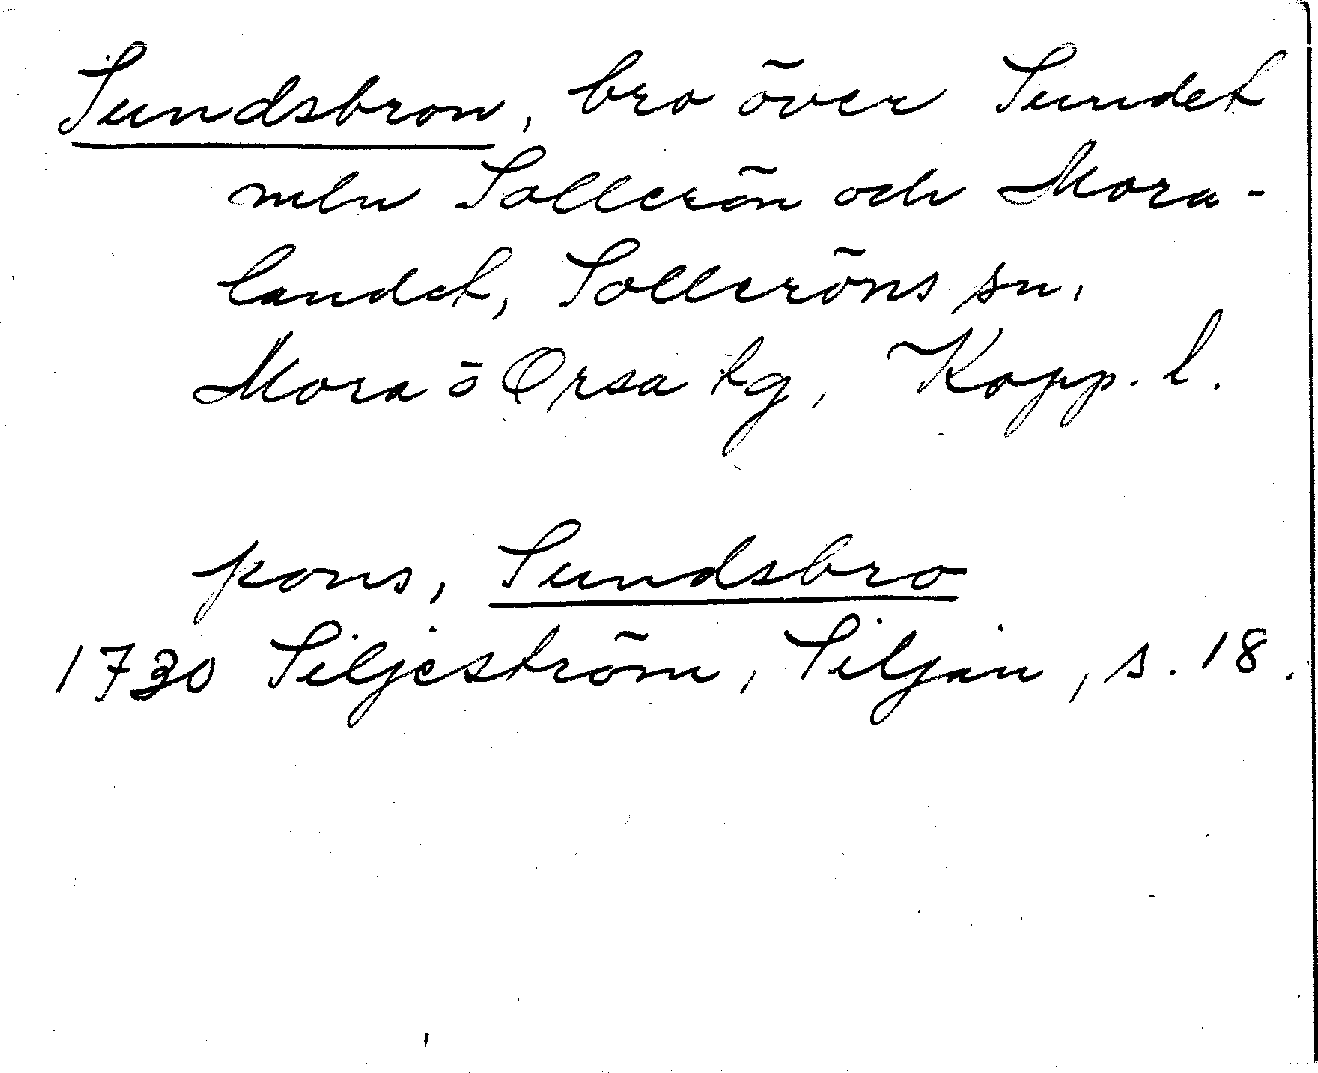 Sundsbron, bro över Sundet
mln Sollerön och Mora-
landet, Solleröns sn,
Mora o Orsa tg, Kopp. l.
pons, Sundsbro
1730 Siljeström, Siljan, s. 18.